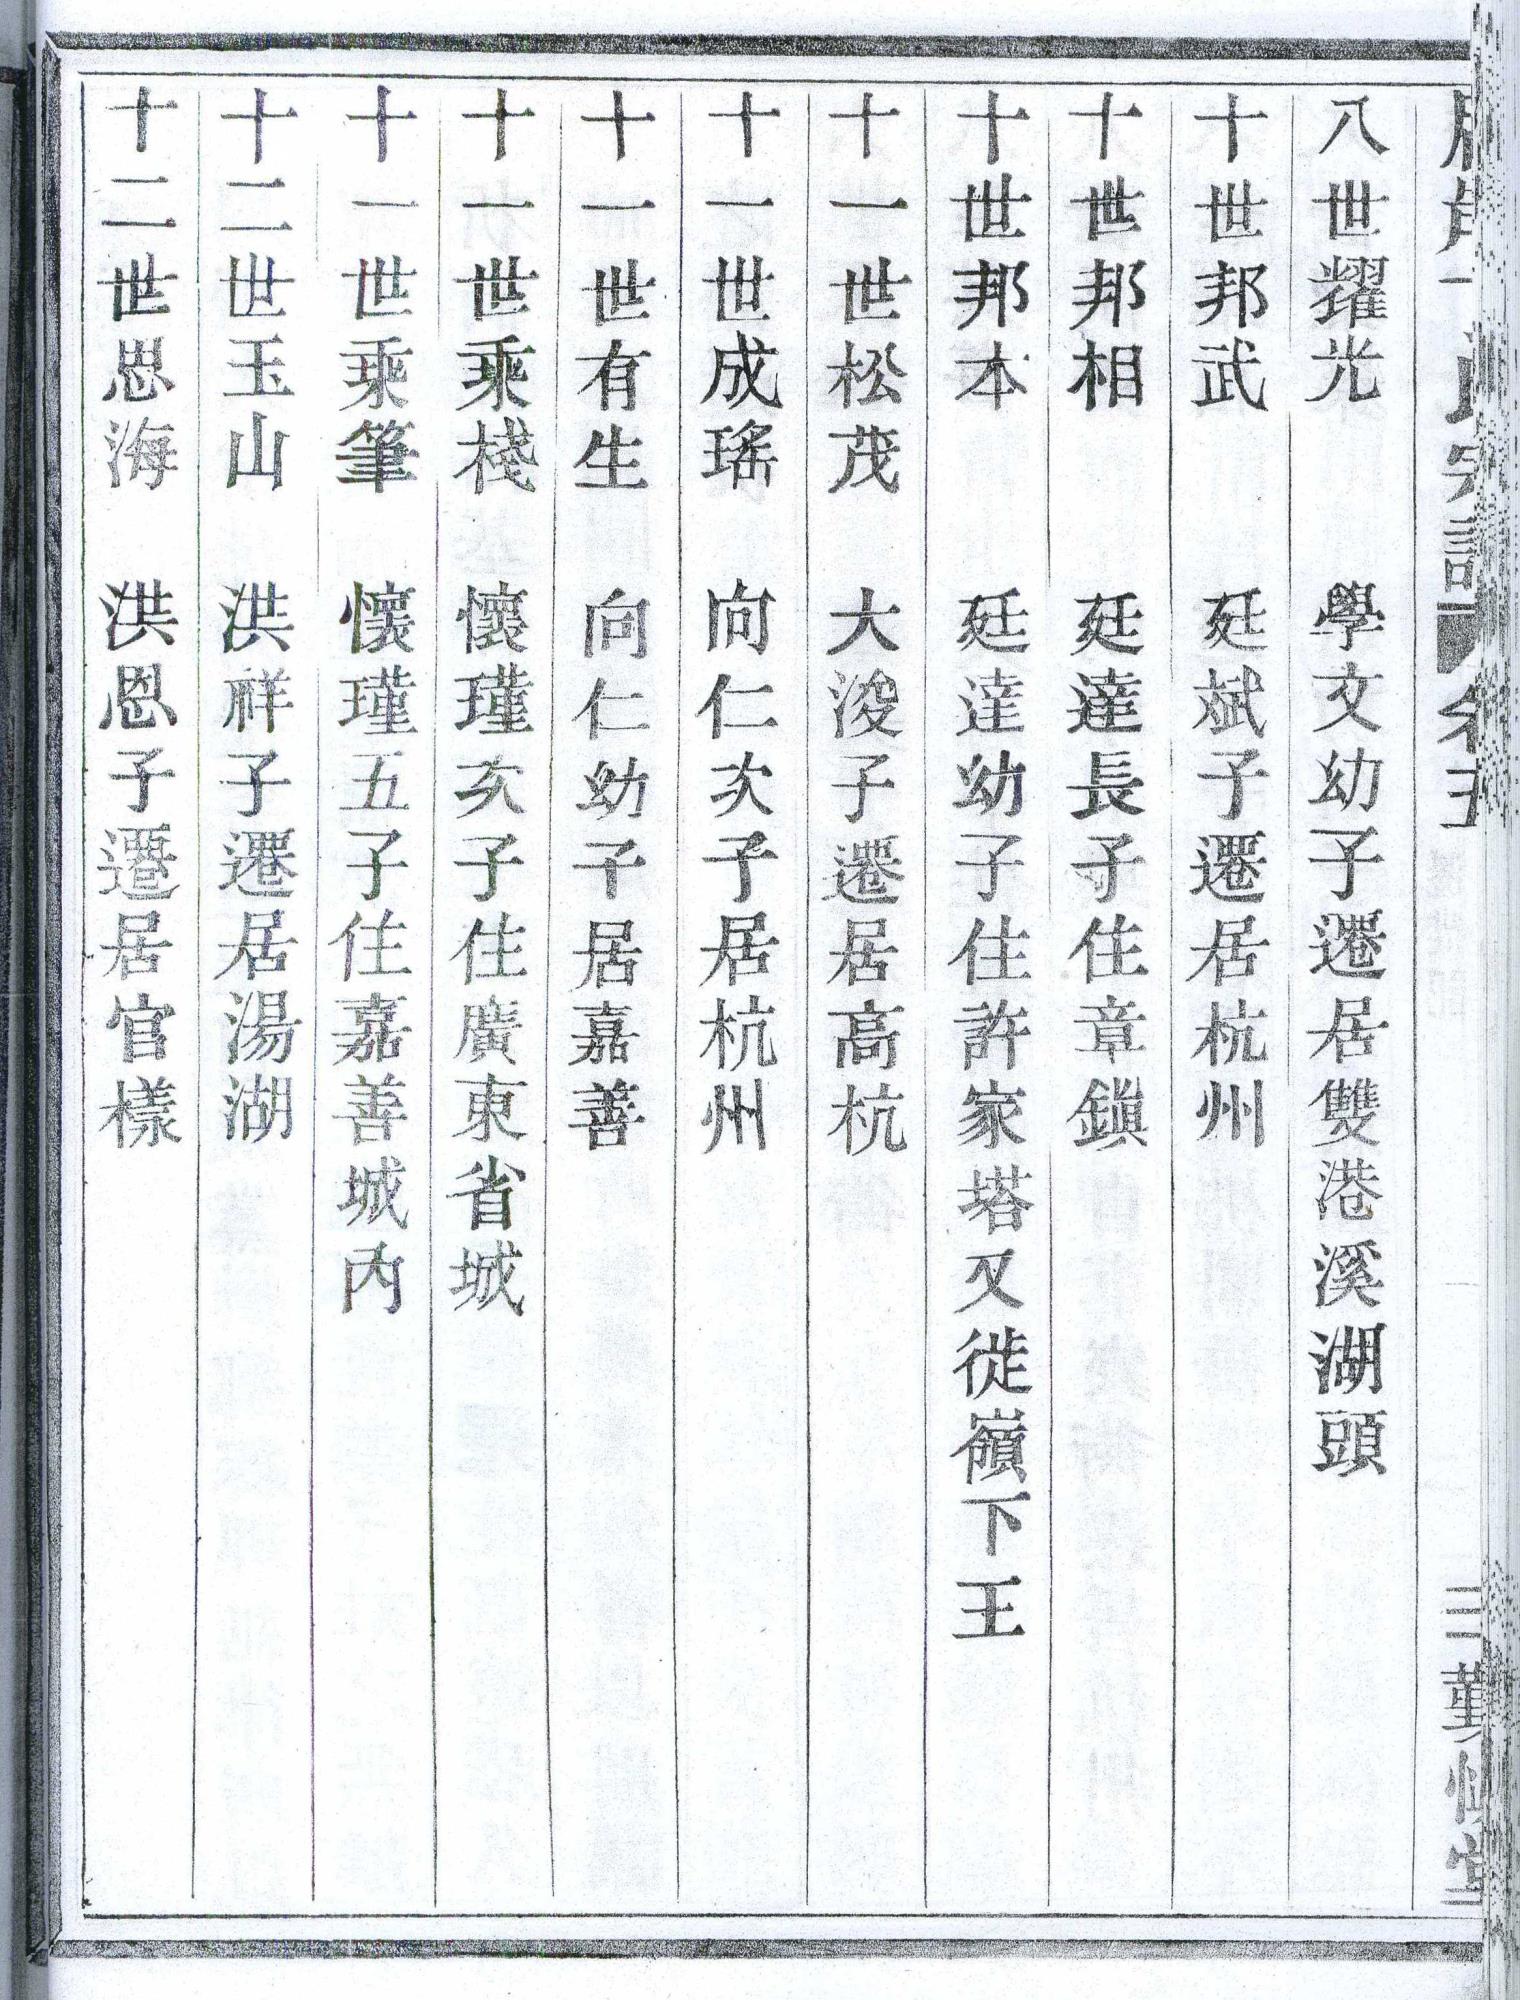 氏宗譜 卷五 三 勤慎堂
八世耀光 學文幼子遷居雙港溪湖頭
十世邦武 廷斌子遷居杭州
十世邦相 廷達長子住章鎮
十世邦本 廷達幼子住許家塔又徙嶺下王
十一世松茂 大浚子遷居高杭
十一世成瑤 向仁次子居杭州
十一世有生 向仁幼子居嘉善
十一世乘棧 懷瑾次子住廣東省城
十一世乘筆 懷瑾五子住嘉善城內
十二世玉山 洪祥子遷居湯湖
十二世思海 洪恩子遷居官樣